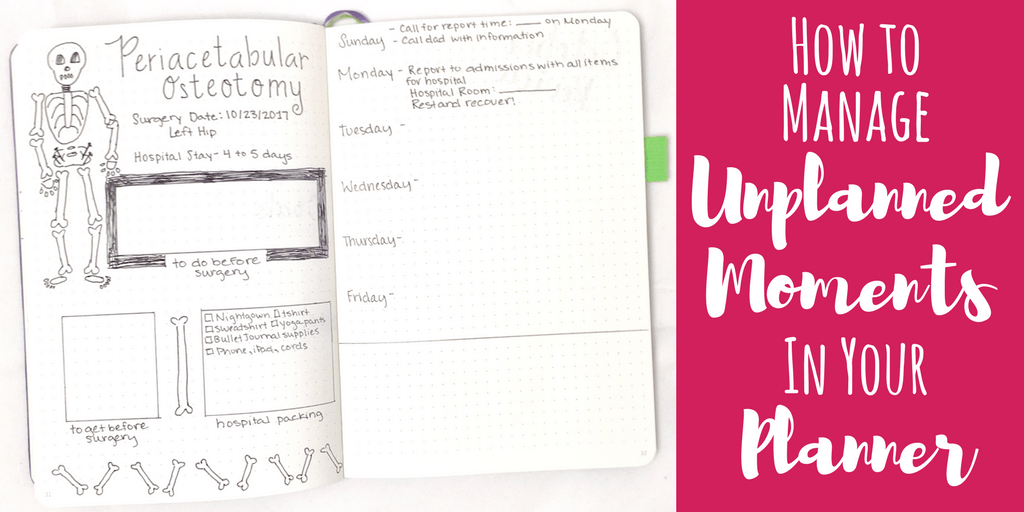 Periacetabular
Osteotomy
Surgery Date: 10/23/2017
Left Hip
Hospital Stay - 4 to 5 days
to do before
surgery
Nightgown tshirt
Sweatshirt yoga pants
Bullet Journal supplies
Phone, iPad, cords
to get before
surgery
hospital packing
- Call for report time: ____ on Monday
Sunday - Call dad with information
Monday - Report to admissions with all items
for hospital
Hospital Room: ________
Rest and recover!
Tuesday -
Wednesday -
Thursday -
Friday -
How to
Manage
Unplanned
Moments
In Your
Planner